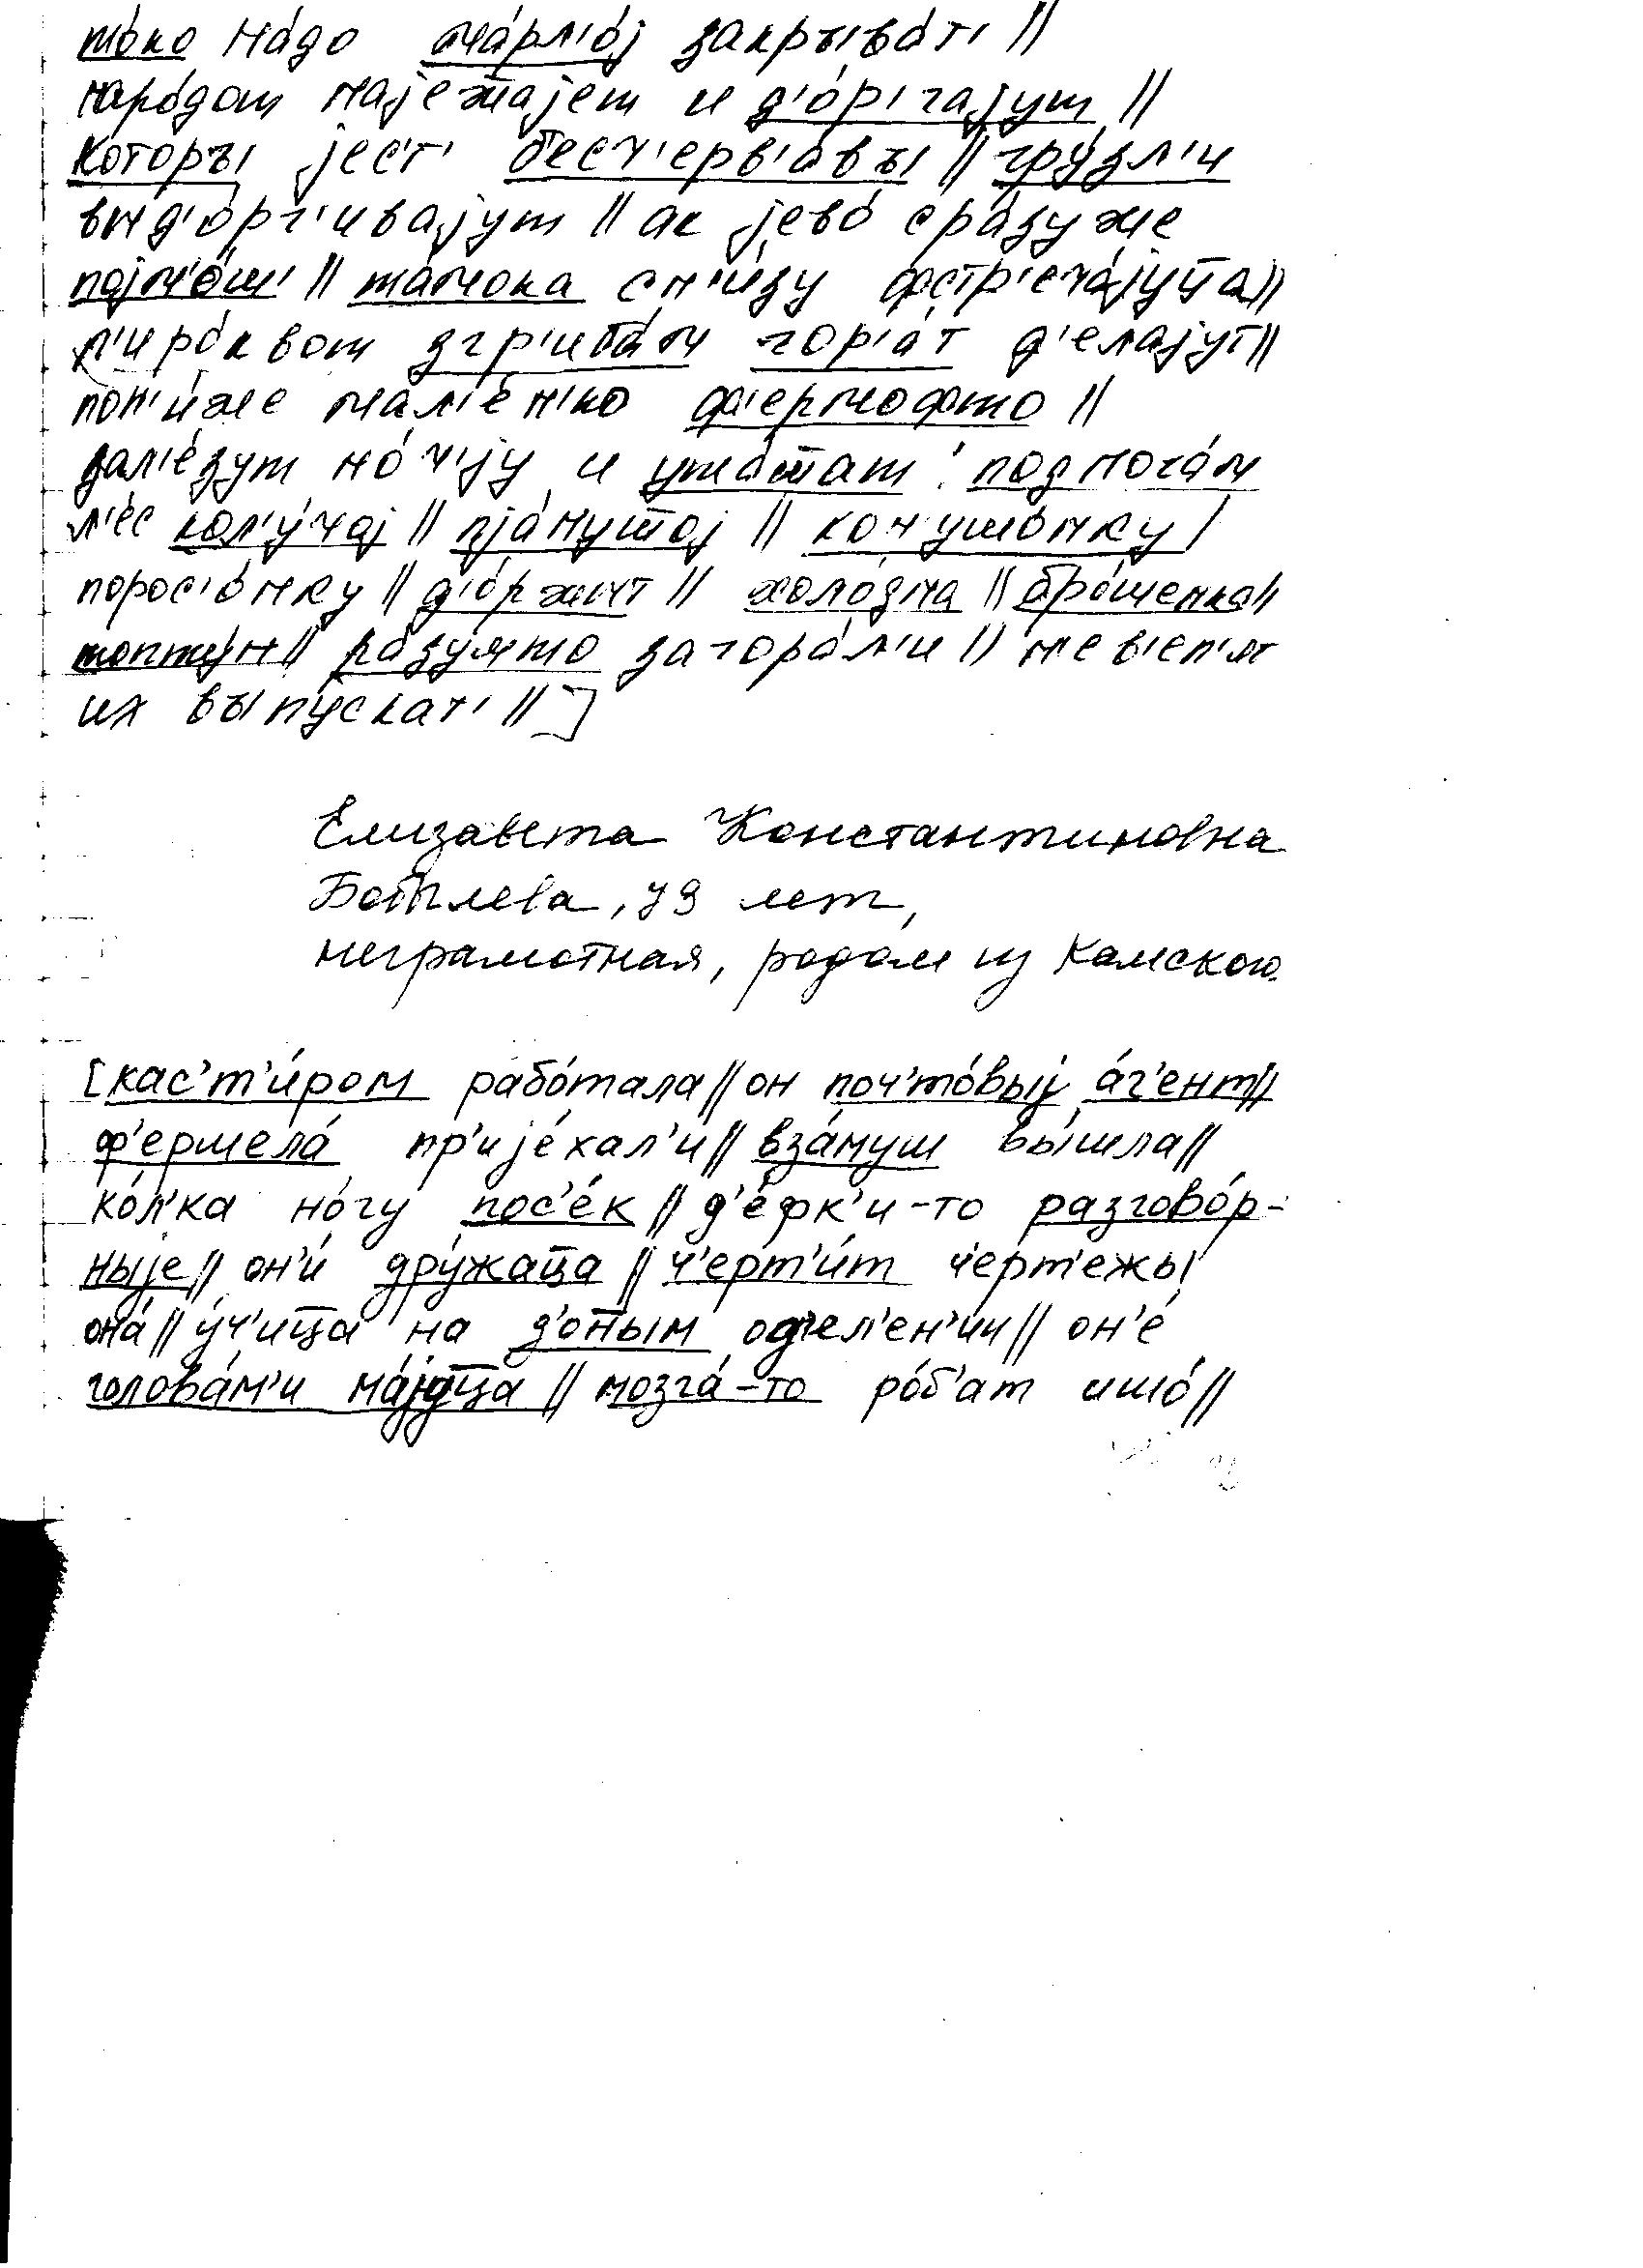 то́ко на́до ма́рл'о́j закрыва́т' //
наро́дом наjежа̄jет и д'о́р'гаjут //
которы jес'т' бесч'ерв'а́вы // гру́зл'и
выд'о́рг'иваjут // ак jево́ сра́зу же
поjм'о́ш // та́мока сн'и́зу фстр'еча́jуц̄а //
п'иро́к вот згр'иба́м гор'а́т д'елаjут //
пон'и́же мал'е́н'ко ф'ермофто //
зал'е́зут но́ч'jу и ута́т̄ат : подмога́м
л'ес кол'у́чаj // пjа́нуш̄оj // кон'ушо́нку /
порос'о́нку // д'о́ржыт // холо́дна // бро́шенка //
топту́н // ра́зумто загора́л'и // не в'ел'ат
их выпускат' // ]
Елизавета Константиновна
Бобылева, 79 лет,
неграмотная, родом из Камского.
[кас'т'и́ром рабо́тала // он поч'то́выj а́г'ент //
ф'ершела́ пр'иjе́хал'и // вза́муш вы́шла //
ко́л'ка но́гу пос'е́к // д'е́фк'и-то разгово́р-
ныjе // он'и́ дру́жац̄а // ч'ерт'и́т ч'ерт'ежы́
она́ // у́ч'иц̄а на д'о́н̄ым од'ел'е́н'ии // он'е́
голова́м'и ма́jуц̄а // мозга́-то ро́б'ат ишо́ //